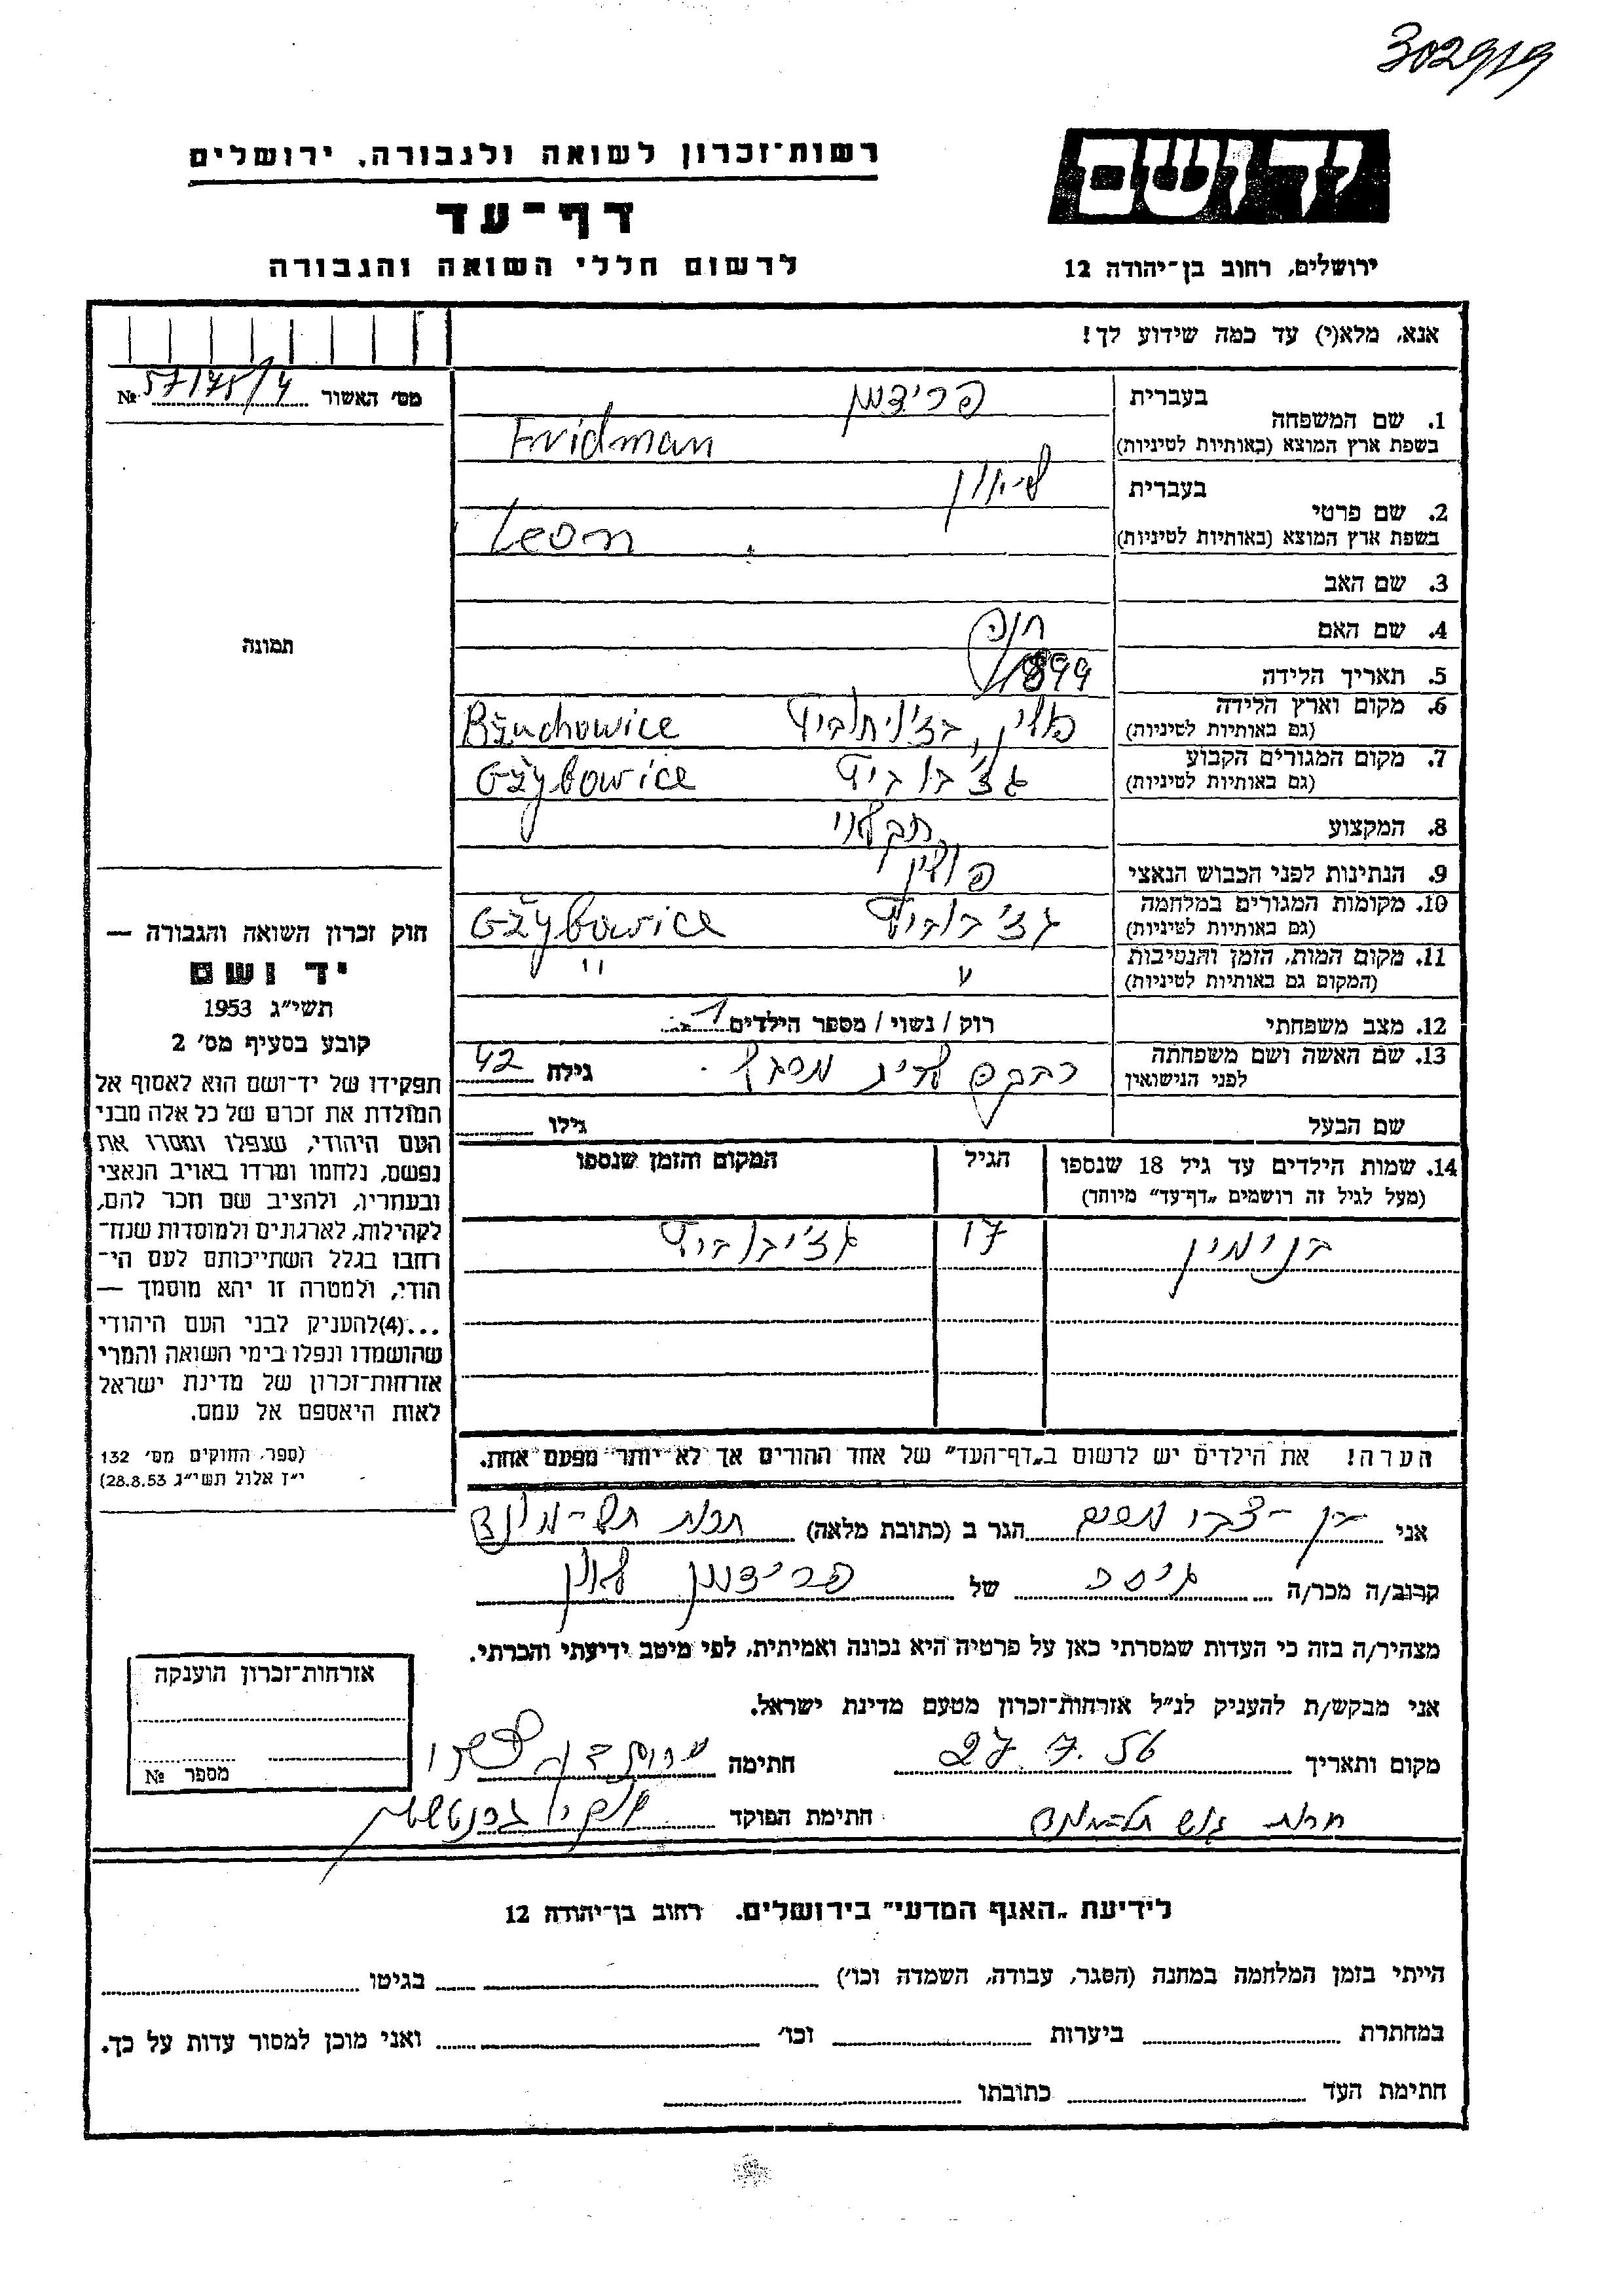 302919
רשות־זכרון לשואה ולגבורה, ירושלים
יד ושם
דף־עד
לרשום חללי השואה והגבורה
ירושלים, רחוב בן־יהודה 12
אנא, מלא(י) עד כמה שידוע לך!
מס׳ האשור № 57175/4
תמונה
1. שם המשפחה
בעברית פרידמן
בשפת ארץ המוצא (באותיות לטיניות) Fridman
2. שם פרטי
בעברית ליאון
בשפת ארץ המוצא (באותיות לטיניות) Leon
3. שם האב
4. שם האם חנה
5. תאריך הלידה 1899
6. מקום וארץ הלידה
(גם באותיות לטיניות) פולין, בז׳וחוביץ Bżuchowice
7. מקום המגורים הקבוע
(גם באותיות לטיניות) גז׳בוביץ Gżybowice
8. המקצוע חקלאי
9. הנתינות לפני הכבוש הנאצי פולין
10. מקומות המגורים במלחמה
(גם באותיות לטיניות) גז׳בוביץ Gżybowice
11. מקום המות, הזמן והנסיבות
(המקום גם באותיות לטיניות) " "
12. מצב משפחתי רוק / נשוי / מספר הילדים 1
13. שם האשה ושם משפחתה
לפני הנישואין רבקה גילה 42
שם הבעל גילו
14. שמות הילדים עד גיל 18 שנספו הגיל המקום והזמן שנספו
(מעל לגיל זה רושמים „דף־עד״ מיוחד)
בנימין 17 גז׳יבוביץ
הערה! את הילדים יש לרשום ב„דף־העד״ של אחד ההורים אך לא יותר מפעם אחת.
חוק זכרון השואה והגבורה —
יד ושם
תשי״ג 1953
קובע בסעיף מס׳ 2
תפקידו של יד־ושם הוא לאסוף אל
המולדת את זכרם של כל אלה מבני
העם היהודי, שנפלו ומסרו את
נפשם, נלחמו ומרדו באויב הנאצי
ובעוזריו, ולהציב שם וזכר להם,
לקהילות, לארגונים ולמוסדות שנח־
רבו בגלל השתייכותם לעם הי־
הודי, ולמטרה זו יהא מוסמך —
...(4)להעניק לבני העם היהודי
שהושמדו ונפלו בימי השואה והמרי
אזרחות־זכרון של מדינת ישראל
לאות היאספם אל עמם.
(ספר החוקים מס׳ 132
י״ז אלול תשי״ג 28.8.53)
אני בן־צבי הגר ב (כתובת מלאה)
קרוב/ה מכר/ה גיסה של פרידמן לאון
מצהיר/ה בזה כי העדות שמסרתי כאן על פרטיה היא נכונה ואמיתית, לפי מיטב ידיעתי והכרתי.
אני מבקש/ת להעניק לנ״ל אזרחות־זכרון מטעם מדינת ישראל.
מקום ותאריך 27.7.56 חתימה
חתימת הפוקד
אזרחות־זכרון הוענקה
מספר №
לידיעת „האגף המדעי״ בירושלים. רחוב בן־יהודה 12
הייתי בזמן המלחמה במחנה (הסגר, עבודה, השמדה וכו׳) בגיטו
במחתרת ביערות וכו׳ ואני מוכן למסור עדות על כך.
חתימת העד כתובתו